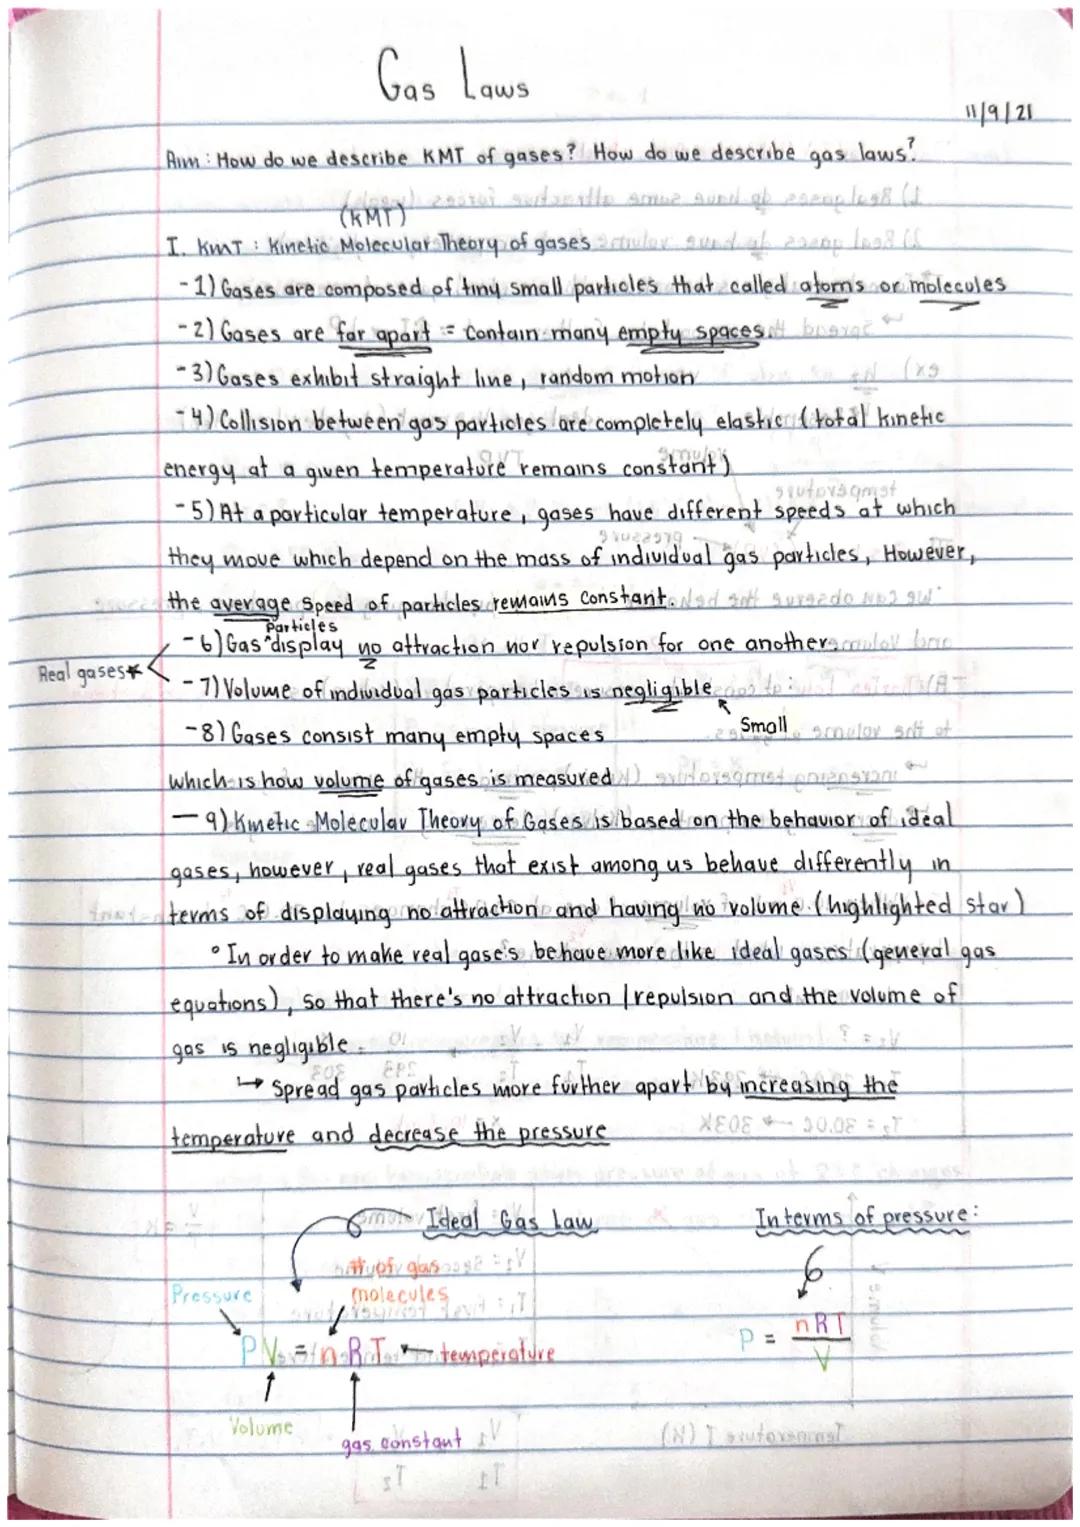 Gas Laws
11/9/21
Aim : How do we describe KMT of gases? How do we describe gas laws?
(KMT)
I. KMT : Kinetic Molecular Theory of gases
-1) Gases are composed of tiny small particles that called atoms or molecules
-2) Gases are far apart = Contain many empty spaces.
-3) Gases exhibit straight line, random motion
-4) Collision between gas particles are completely elastic (total kinetic
energy at a given temperature remains constant)
-5) At a particular temperature, gases have different speeds at which
they move which depend on the mass of individual gas particles, However,
the average speed of particles remains constant.
Particles
-6) Gas ^display no attraction nor repulsion for one another
Real gases*
-7) Volume of individual gas particles is negligible
Small
-8) Gases consist many empty spaces
which is how volume of gases is measured
- 9) Kinetic Molecular Theory of Gases is based on the behavior of ideal
gases, however, real gases that exist among us behave differently in
terms of displaying no attraction and having no volume. (highlighted star)
° In order to make real gase's behave more like ideal gases (general gas
equations), so that there's no attraction / repulsion and the volume of
gas is negligible.
↳ Spread gas particles more further apart by increasing the
temperature and decrease the pressure
Ideal Gas Law
In terms of pressure:
# of gas
molecules
Pressure
PV = nRT ← temperature
P = nRT
V
Volume
gas constant